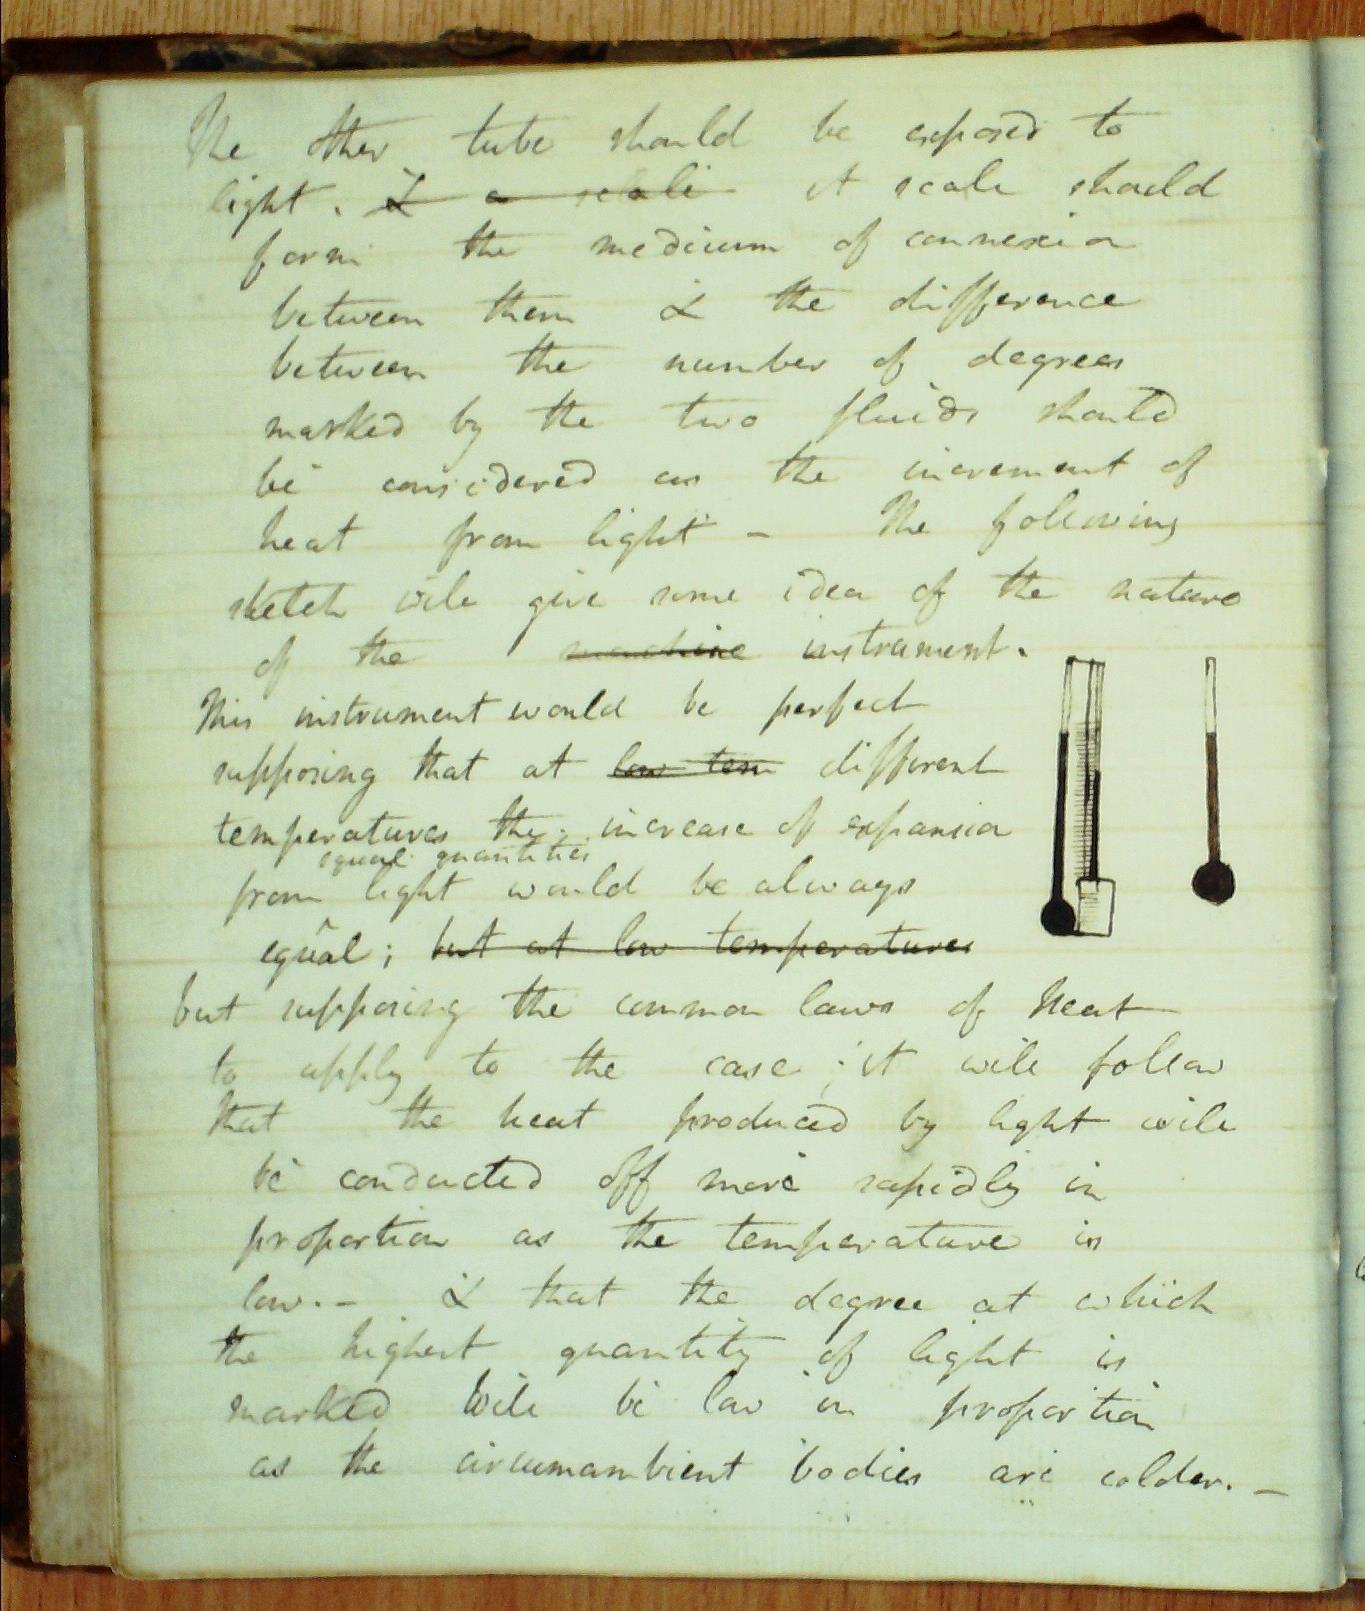 The other tube should be exposed to
light. & a scale A scale should
form the medium of connexion
between them & the difference
between the number of degrees
marked by the two fluids should
be considered as the increment of
heat from light – The following
sketch will give some idea of the nature
of the machine instrument.
This instrument would be perfect
supposing that at low tem different
temperatures the increase of expansion
equal quantities
from light would be always
equal; but at low temperatures
but supposing the common laws of heat
to apply to the case; it will follow
that the heat produced by light will
be conducted off more rapidly in
proportion as the temperature is
low. – & that the degree at which
the highest quantity of light is
marked will be low in proportion
as the circumambient bodies are colder. –